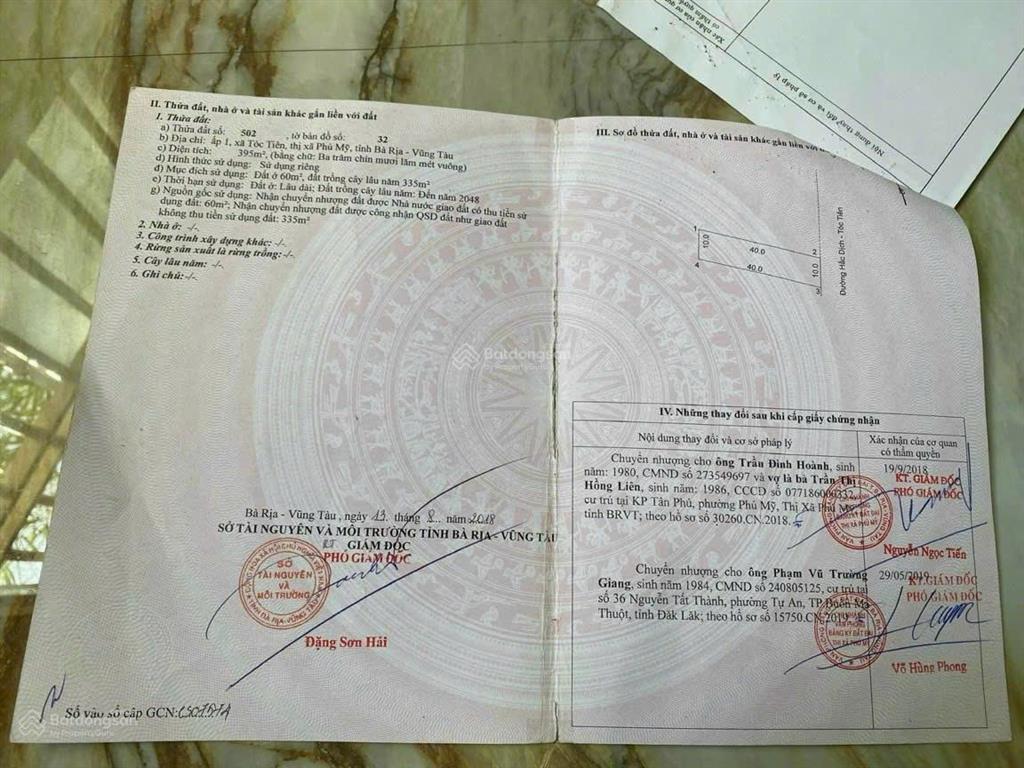 II. Thửa đất, nhà ở và tài sản khác gắn liền với đất
1. Thửa đất:
a) Thửa đất số: 502 , tờ bản đồ số: 32
b) Địa chỉ: ấp 1, xã Tóc Tiên, thị xã Phú Mỹ, tỉnh Bà Rịa - Vũng Tàu
c) Diện tích: 395m², (bằng chữ: Ba trăm chín mươi lăm mét vuông)
d) Hình thức sử dụng: Sử dụng riêng
đ) Mục đích sử dụng: Đất ở 60m², đất trồng cây lâu năm 335m²
e) Thời hạn sử dụng: Đất ở: Lâu dài; Đất trồng cây lâu năm: Đến năm 2048
g) Nguồn gốc sử dụng: Nhận chuyển nhượng đất được Nhà nước giao đất có thu tiền sử
dụng đất: 60m²; Nhận chuyển nhượng đất được công nhận QSD đất như giao đất
không thu tiền sử dụng đất: 335m²
2. Nhà ở: -/-
3. Công trình xây dựng khác: -/-
4. Rừng sản xuất là rừng trồng: -/-
5. Cây lâu năm: -/-
6. Ghi chú: -/-
Bà Rịa - Vũng Tàu , ngày 13 tháng 8 năm 2018
SỞ TÀI NGUYÊN VÀ MÔI TRƯỜNG TỈNH BÀ RỊA - VŨNG TÀU
KT. GIÁM ĐỐC
PHÓ GIÁM ĐỐC
SỞ
TÀI NGUYÊN
VÀ
MÔI TRƯỜNG
Đặng Sơn Hải
Số vào sổ cấp GCN:
III. Sơ đồ thửa đất, nhà ở và tài sản khác gắn liền với
1
2
3
4
10.0
40.0
40.0
10.0
Đường Hắc Dịch - Tóc Tiên
IV. Những thay đổi sau khi cấp giấy chứng nhận
Nội dung thay đổi và cơ sở pháp lý
Xác nhận của cơ quan
có thẩm quyền
Chuyển nhượng cho ông Trần Đình Hoành, sinh
năm: 1980, CMND số 273549697 và vợ là bà Trần Thị
Hồng Liên, sinh năm: 1986, CCCD số 077186000332,
cư trú tại KP Tân Phú, phường Phú Mỹ, Thị Xã Phú Mỹ,
tỉnh BRVT; theo hồ sơ số 30260.CN.2018.
19/9/2018
KT. GIÁM ĐỐC
PHÓ GIÁM ĐỐC
ĐĂNG KÝ ĐẤT ĐAI
THỊ XÃ PHÚ MỸ
Nguyễn Ngọc Tiến
Chuyển nhượng cho ông Phạm Vũ Trường
Giang, sinh năm: 1984, CMND số 240805125, cư trú tại
số 36 Nguyễn Tất Thành, phường Tự An, TP Buôn Ma
Thuột, tỉnh Đăk Lăk; theo hồ sơ số 15750.CN.2019
29/05/2019
KT. GIÁM ĐỐC
PHÓ GIÁM ĐỐC
VĂN PHÒNG
ĐĂNG KÝ ĐẤT ĐAI
THỊ XÃ PHÚ MỸ
Võ Hùng Phong
Xác nhận của cơ quan
có thẩm quyền
Nội dung thay đổi và cơ sở pháp lý
Batdongsan
Batdongsan
by PropertyGuru